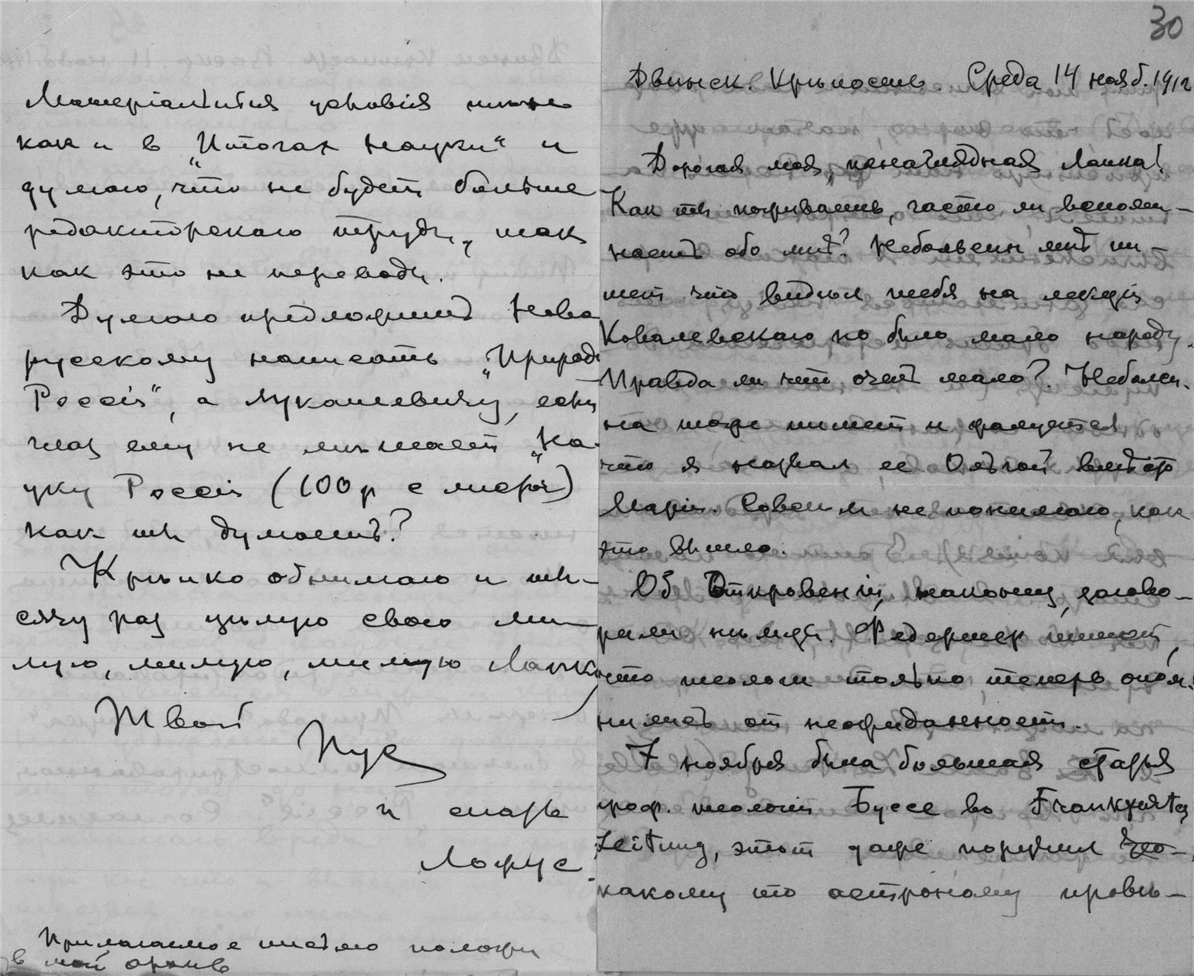 Матеріальныя условія
как и в "Итогах Науки" и
думаю, что не будет больше
редакторскаго труда, так
как это не переводы.
Думаю предложить Ново
русскому написать "Природа
Россіи", а Лукашевичу, если
глаз ему не мешает "На-
уку Россіи (100 р с листа)
как ты думаешь?
Крѣпко обнимаю и ты-
сячу раз цѣлую свою ми-
лую, милую, милую Лапку
Твой
Пус
и
Лофус.
Прилагаемое письмо положи
в мой архив
30
Двинск. Крѣпость. Среда 14 нояб. 1912
Дорогая моя, ненаглядная Лапка!
Как ты поживаешь, часто ли вспоми-
наешь обо мнѣ? Небользин мнѣ пи-
шет что видѣл тебя на лекціи
Ковалевскаго но было мало народу.
Правда ли что очень мало? Небользи-
на тоже пишет и жалуется
что я назвал ее Ольгой вмѣсто
Маріи. Совсѣм не понимаю, как
это вышло.
Об Откровеніи, наконец, загово-
рили нѣмцы. Федермер пишет,
что теологи только теперь опом-
нились от неожиданности.
7 ноября была большая статья
проф. теологіи Буссе во Frankfurter
Zeitung, этот даже поручил
какому то астроному провѣ-